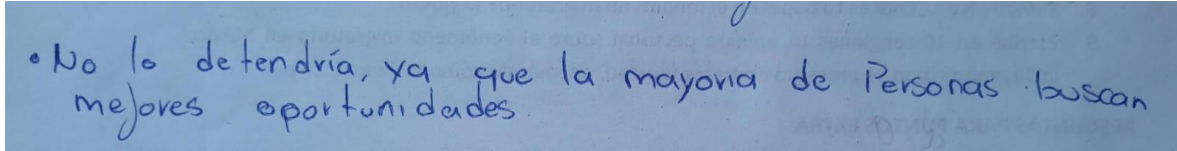 • No lo detendría, ya que la mayoria de Personas buscan
mejores oportunidades.